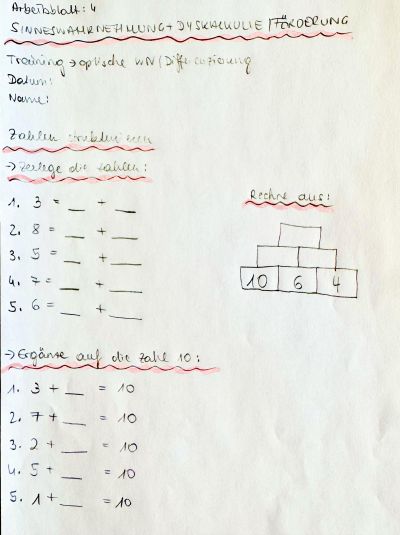 Arbeitsblatt: 4
SINNESWAHRNEHMUNG + DYSKALKULIE / FÖRDERUNG
Training → optische WN / Differenzierung
Datum:
Name:
Zahlen
→ Zerlege die Zahlen:
1. 3 = __ + __
2. 8 = __ + __
3. 5 = __ + __
4. 7 = __ + __
5. 6 = __ + __
Rechne aus:
10 6 4
→ Ergänze auf die Zahl 10:
1. 3 + __ = 10
2. 7 + __ = 10
3. 2 + __ = 10
4. 5 + __ = 10
5. 1 + __ = 10